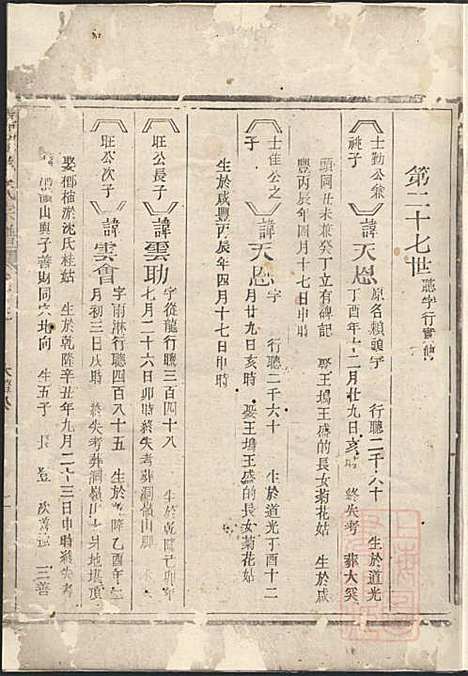 第二十七世 聽字行實傳
士勤公兼祧子 諱天恩 原名賴頭字 行聽二千六十 生於道光
丁酉年十二月廿九日亥時 終失考 葬大窝
頭岡丑未兼癸丁立有碑記 娶王塲王盛的長女菊花姑 生於咸
豐丙辰年四月十七日申時
士佳公之子 諱天恩 字 行聽二千六十 生於道光丁酉十二
月廿九日亥時 娶王塲王盛的長女菊花姑
生於咸豐丙辰年四月十七日申時
旺公長子 諱雲助 字從龍行聽三百四十八 生於乾隆己卯年
七月二十六日卯時終失考葬洞嶺山
旺公次子 諱雲會 字雨淋行聽四百八十五 生於乾隆乙酉年
月初三日戌時 終失考葬洞嶺山
娶鄉柿淤沈氏桂姑 生於乾隆辛丑年九月二十三日申時終失考
山與子善財同穴 向 生五子 長 登 次善 三善